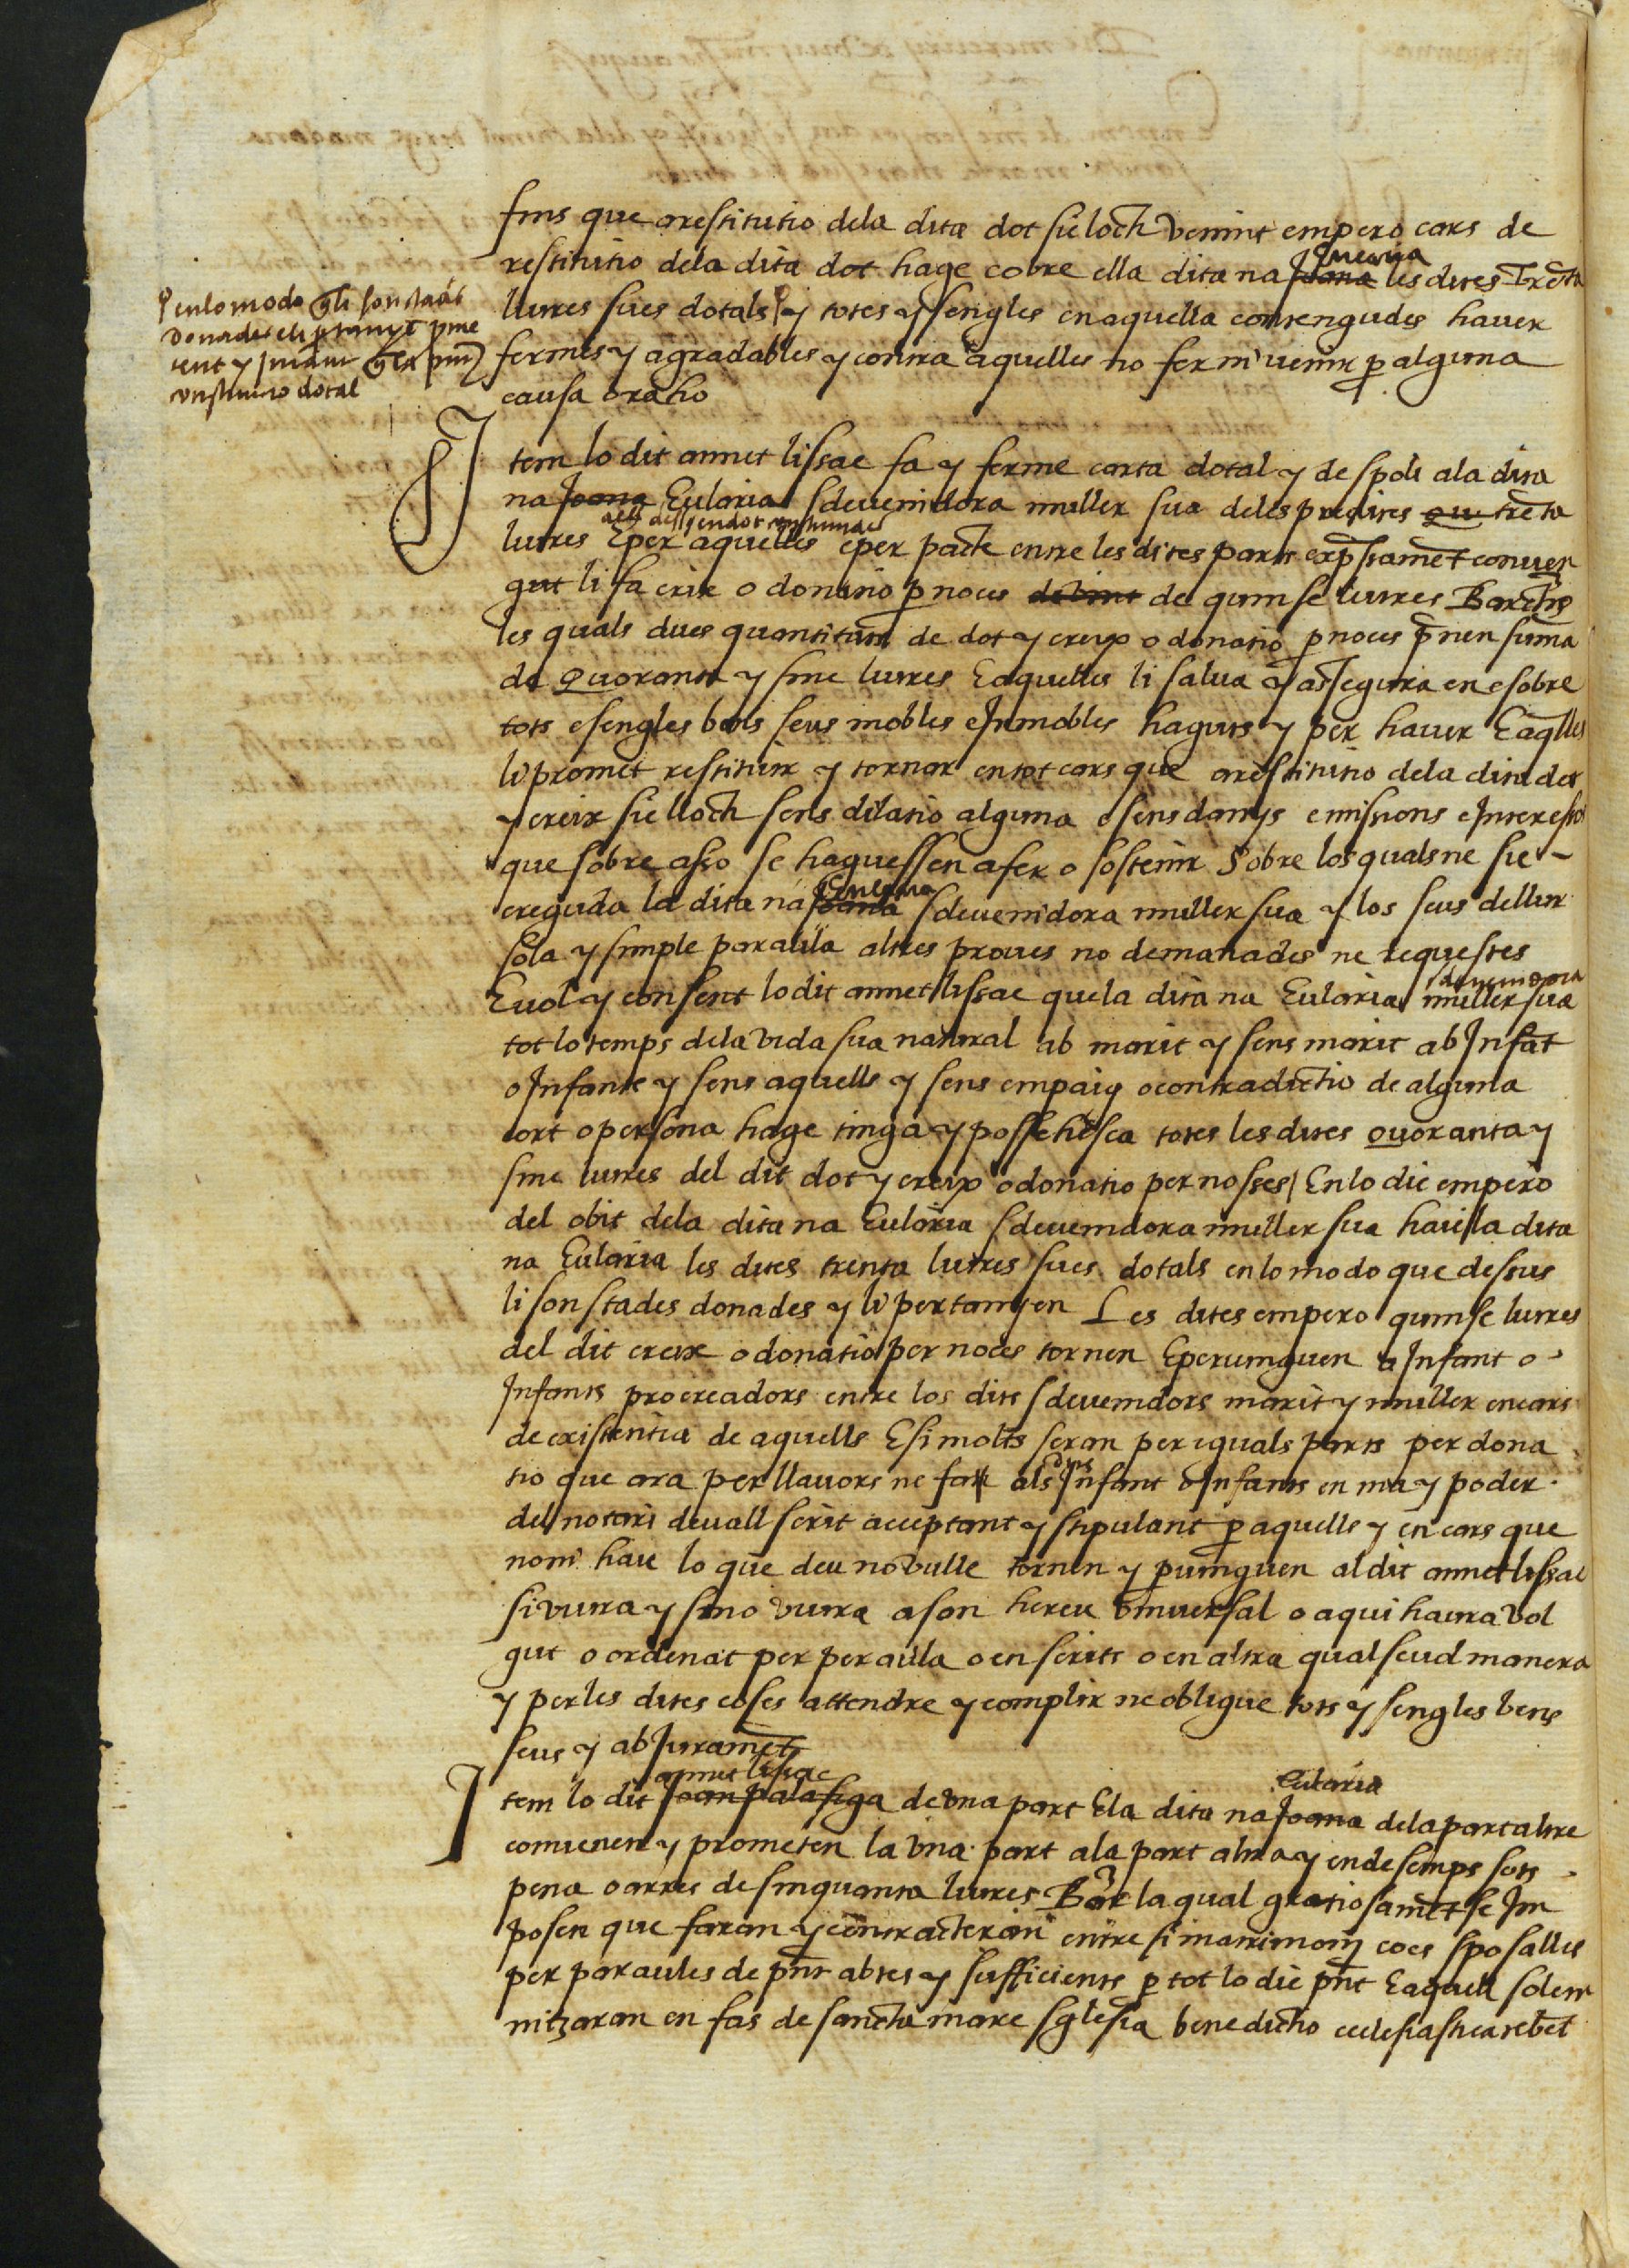 fins que a restitutio dela dita dot sie loch venint empero cars de
restitutio dela dita dot hage e cobre ella dita na Joana Eularia les dites trenta
enlomodo q̃ li son stades
donades
y
constitutio dotal
liures sues dotals y totes y sengles en aquella contengudes hauer
fermes y agradables y contra aquelles no fer ni venir p alguna
causa o ratio
Item lo dit annet lissac fa y ferme carta dotal y de spoli ala dita
na Joana Eularia sdeuenidora muller sua deles predites qu trẽta
aell dessendot constituides
liures E per aquelles e per pacte entre les dites parts exp̃ssamẽt conuen
gut li fa crix o donatio p noces de vint de quinse liures Barchs
les quals dues quantitats de dot y creyx o donatio p noces p̃nen suma
de quoranta y sinc liures E aquelles li salua y assegura en e sobre
tots e sengles bens seus mobles e Inmobles haguts y per hauer E aq̃lles
li promet restituir y tornar en tot cars que a restitutio dela dita dot
y creix sie lloch sens dilatio alguna e sens danys e missions e Interessos
que sobre asso se haguessen afer o sostenir Sobre los quals ne sie
creguda la dita na Joana Eularia sdeuenidora muller sua y los seus de llur
sola y simple paraula altres proues no demanades ne requestes
E vol y consent lo dit annet lissac que la dita na Eularia sdeuenidora muller sua
tot lo temps dela vida sua natural ab marit y sens marit ab Infãt
o Infants y sens aquells y sens empaig o contradictio de alguna
cort o persona hage tinga y possehesca totes les dites quoranta y
sinc liures del dit dot y creyx o donatio per nosses / En lo die empero
del obit dela dita na Eularia sdeuenidora muller sua haie la dita
na Eularia les dites trenta liures sues dotals en lo modo que dessus
li son stades donades y li pertanyen Les dites empero quinse liures
del dit creix o donatio per noces tornen E peruinguen a Infant o
Infants procreadors entre los dits sdeuenidors marit y muller en cars
de existentia de aquells E si molts seran per iguals parts per dona
tio que ara per llauors ne fan als dits Infant o Infants en ma y poder
del notari deuall scrit acceptant y stipulant p aquells y en cars que
noni haie lo que deu no vulle tornen y p uinguen al dit annet lissac
si viura y sino viura a son hereu vniuersal o a qui haura vol
gut o ordenat per peraula o en scrits o en altra qualseuol manera
y per les dites coses attendre y complir ne obligue tots y sengles bens
seus y ab Juramẽt
Item lo dit Joan palasiga annet lissac de vna part E la dita na Joana Eularia dela part altre
conuenen y prometen la vna part ala part altra y endesemps sots
pena o arres de sinquanta liures Bar la qual gratiosamẽt se Im
posen que faran y contracteran entre si matrimoni coes sposalles
per paraules de p̃nt abtes y sufficients p tot lo die p̃nt E aquell solem
nitzaran en fas de sancta mare sglesia benedictio ecclesiastica rebẽt